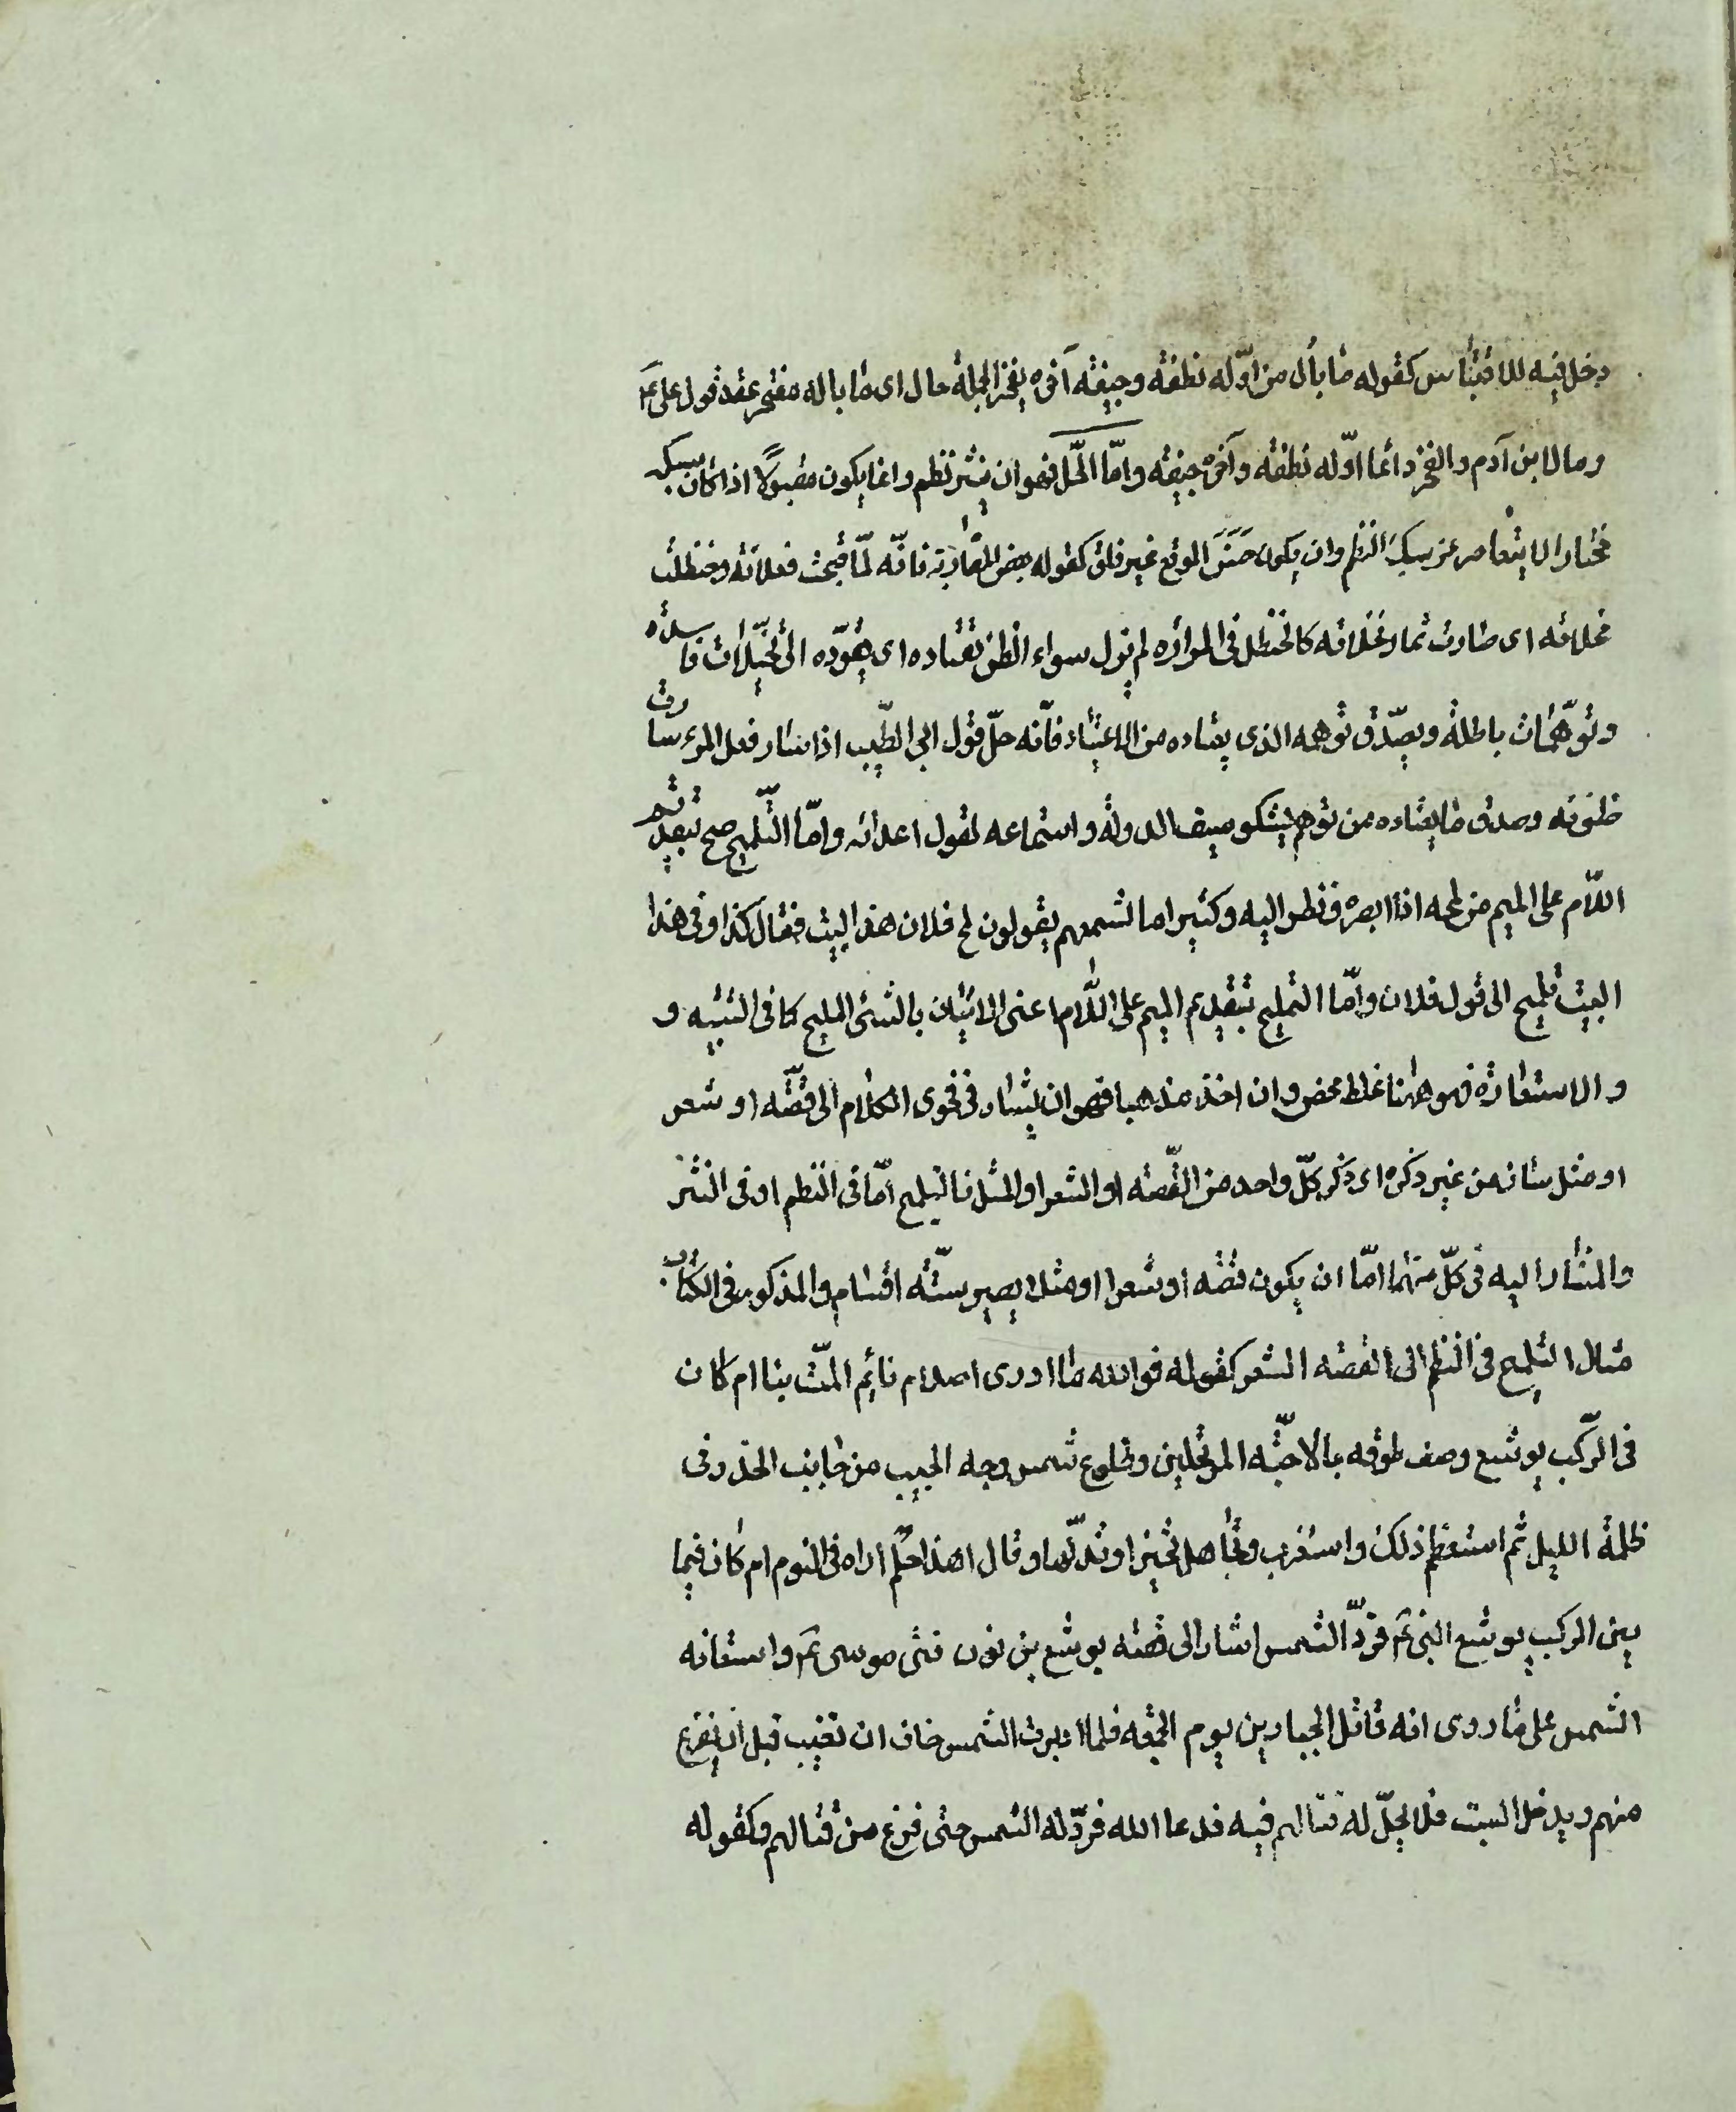 دخل فيه للاقتباس كقوله ما بال من اوّله نطفة وجيفة آخره يفخر الجملة حال اى ما باله مفتخر عقد قول على عم
وما لابن آدم والفخر وانما اوّله نطفة وآخره جيفة وامّا الحلّ فهو ان ينثر نظم وانما يكون مقبولاً اذا كان سبكه
مختار الا يتقاصر عن سبك النظم وان يكون حسن الموقع غير قلق كقوله بعض المغاربة فانّه لمّا قبحت فعلاته وحنظلت
نخلاته اى صارت ثمار نخلاته كالحنظل فى المرارة لم يزل سوء الظن يقتاده اى يقوّده الى تخيّلات فاسدة
وتوهّمات باطلة ويصدّق توهمه الذى يعتاده من الاعتياد فانّه حلّ قول ابى الطيّب اذا ساء فعل المرء ساءت
ظنونه وصدق ما يعتاده من توهم يشكو سيف الدولة واستماعه لقول اعدائه وامّا التّلميح صح بتقديم
اللاّم على الميم من لمحه اذا ابصره ونظر اليه وكثيرا ما تسمعهم يقولون لمح فلان هذا البيت فقال كذا وفى هذا
البيت تلميح الى قول فلان وامّا التمليح بتقديم الميم على اللاّم اعنى الاتيان بالشئ المليح كما فى التشبيه و
والاستعارة فهو ههنا غلط محض وان اخذ مذهبا فهو ان يشار فى فحوى الكلام الى قصّة او شعر
او مثل سائر من غير ذكره اى ذكر كلّ واحد من القّصة او الشعر او المثل فالتلميح امّا فى النظم او فى النثر
والمشار اليه فى كلّ منهما امّا ان يكون قصّة او شعرا او مثلا يصير ستّة اقسام والمذكور فى الكتاب
مثال التلميح فى النظم الى القصة الشعر كقوله فوالله ما ادرى احلام نايم المّت بنا ام كان
فى الرّكب يوشع وصف طوقه بالاحبّة المرتحلين وطلوع شمس وجه الحبيب من جانب الخدر فى
ظلمة الليل ثم استعظم ذلك واستغرب وتجاهل تحيّرا وتدلّها وقال اهذا حلم اراه فى النوم ام كان فيما
بين الركب يوشع النبى عم فردّ الشمس اشار الى قصة يوشع بن نون فتى موسى عم واستقافه
الشمس على ما روى انه قاتل الجبارين يوم الجمعة فلما ادبرت الشمس خاف ان تغيب قبل ان يفرغ
منهم ويدخل السبت فلا يحلّ له قتالهم فيه فدعا الله فردّ له الشمس حتى فرغ من قتالهم وكقوله